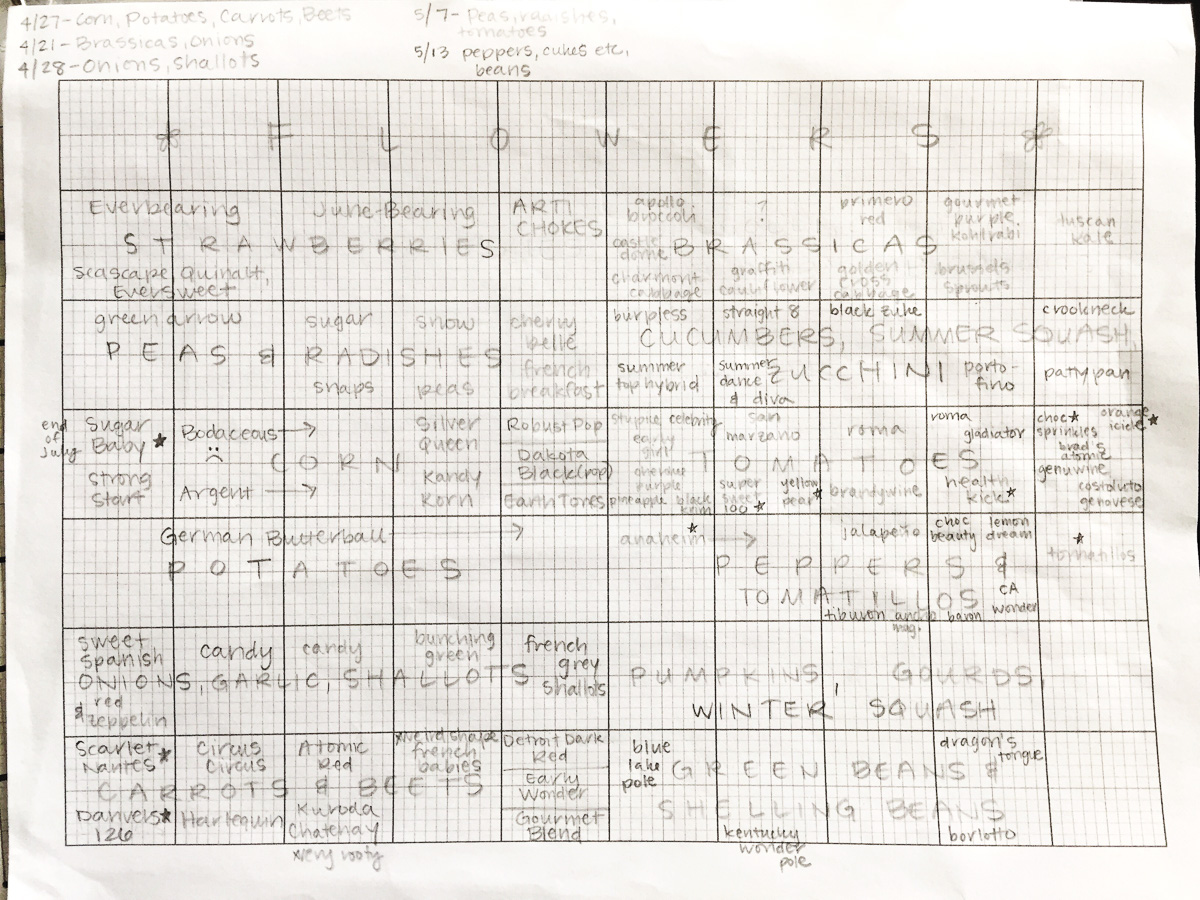 4/27-Corn, Potatoes, Carrots, Beets
4/21-Brassicas, Onions
4/28-Onions, Shallots
5/7-Peas, radishes,
tomatoes
5/13 peppers, cukes etc,
beans
FLOWERS
Everbearing
June-Bearing
STRAWBERRIES
Seascape, Quinalt,
Eversweet
ARTI
CHOKES
apollo
broccoli
?
primero
red
gourmet
purple
kohlrabi
tuscan
kale
castle
dome
BRASSICAS
charmont
cabbage
graffiti
cauliflower
golden
cross
cabbage
brussels
sprouts
green arrow
sugar
snow
cherry
belle
PEAS & RADISHES
snaps
peas
french
breakfast
burpless
straight 8
black zuke
crookneck
CUCUMBERS, SUMMER SQUASH,
ZUCCHINI
summer
top hybrid
summer
dance
& diva
porto-
fino
pattypan
end
of
july
Sugar
Baby ★
Bodaceous →
Silver
Queen
Robust Pop
CORN
strong
start
Argent →
Kandy
Korn
Dakota
Black (Pop)
Earth Tones
stupice celebrity
early
girl
san
marzano
roma
roma
gladiator
choc ★
sprinkles
orange
icicle ★
TOMATOES
brad's
atomic
genuwine
cherokee
purple
pineapple
black
krim
super
sweet
100 ★
yellow
pear ★
brandywine
health
kick ★
costoluto
genovese
German Butterball →
POTATOES
anaheim ★ →
jalapeño
choc
beauty
lemon
dream
★
tomatillos
PEPPERS &
TOMATILLOS
CA
wonder
tiburon ancho
mag.
baron
sweet
spanish
candy
candy
bunching
green
french
grey
shallots
ONIONS, GARLIC, SHALLOTS
& red
zeppelin
PUMPKINS, GOURDS,
WINTER SQUASH
Scarlet
Nantes ★
Circus
Circus
Atomic
Red
*weird shape
french
babies
Detroit Dark
Red
CARROTS & BEETS
Danvers ★
126
Harlequin
Kuroda
Chatenay
*very rooty
Early
Wonder
Gourmet
Blend
blue
lake
pole
dragon's
tongue
GREEN BEANS &
SHELLING BEANS
kentucky
wonder
pole
borlotto